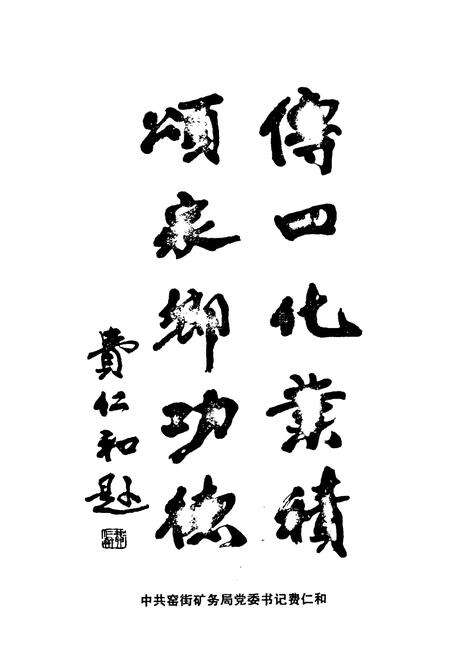 傳四化業積
頌家鄉功德
費仁和题
中共窑街矿务局党委书记费仁和